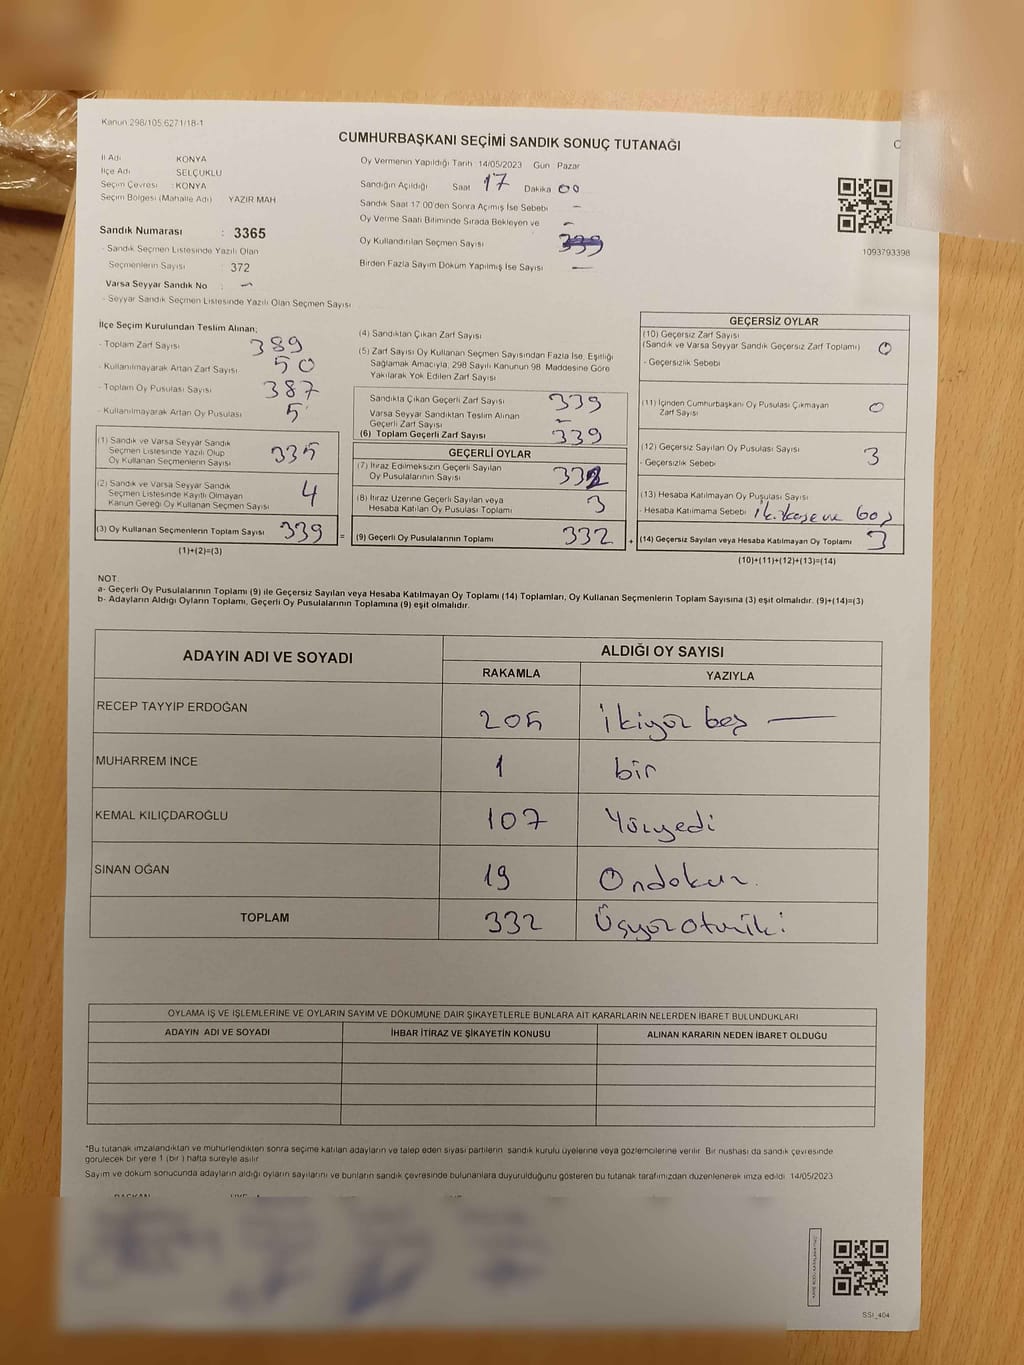 Kanun 298/105,6271/18-1
CUMHURBAŞKANI SEÇİMİ SANDIK SONUÇ TUTANAĞI
İl Adı KONYA
İlçe Adı SELÇUKLU
Seçim Çevresi : KONYA
Seçim Bölgesi (Mahalle Adı) YAZIR MAH
Sandık Numarası : 3365
- Sandık Seçmen Listesinde Yazılı Olan
Seçmenlerin Sayısı : 372
Varsa Seyyar Sandık No : -
- Seyyar Sandık Seçmen Listesinde Yazılı Olan Seçmen Sayısı
Oy Vermenin Yapıldığı Tarih 14/05/2023 Gün : Pazar
Sandığın Açıldığı Saat 17 Dakika 00
Sandık Saat 17:00'den Sonra Açımış İse Sebebi -
Oy Verme Saati Bitiminde Sırada Bekleyen ve -
Oy Kullandırılan Seçmen Sayısı 339
Birden Fazla Sayım Döküm Yapılmış İse Sayısı -
1093793398
İlçe Seçim Kurulundan Teslim Alınan;
- Toplam Zarf Sayısı 389
- Kullanılmayarak Artan Zarf Sayısı 50
- Toplam Oy Pusulası Sayısı 387
- Kullanılmayarak Artan Oy Pusulası 5
(1) Sandık ve Varsa Seyyar Sandık
Seçmen Listesinde Yazılı Olup
Oy Kullanan Seçmenlerin Sayısı 335
(2) Sandık ve Varsa Seyyar Sandık
Seçmen Listesinde Kayıtlı Olmayan
Kanun Gereği Oy Kullanan Seçmen Sayısı 4
(3) Oy Kullanan Seçmenlerin Toplam Sayısı 339 =
(1)+(2)=(3)
(4) Sandıktan Çıkan Zarf Sayısı
(5) Zarf Sayısı Oy Kullanan Seçmen Sayısından Fazla İse, Eşitliği
Sağlamak Amacıyla, 298 Sayılı Kanunun 98. Maddesine Göre
Yakılarak Yok Edilen Zarf Sayısı
Sandıkta Çıkan Geçerli Zarf Sayısı 339
Varsa Seyyar Sandıktan Teslim Alınan
Geçerli Zarf Sayısı -
(6) Toplam Geçerli Zarf Sayısı 339
GEÇERLİ OYLAR
(7) İtiraz Edilmeksizin Geçerli Sayılan
Oy Pusulalarının Sayısı 332
(8) İtiraz Üzerine Geçerli Sayılan veya
Hesaba Katılan Oy Pusulası Toplamı 3
(9) Geçerli Oy Pusulalarının Toplamı 332 +
GEÇERSİZ OYLAR
(10) Geçersiz Zarf Sayısı
(Sandık ve Varsa Seyyar Sandık Geçersiz Zarf Toplamı) 0
- Geçersizlik Sebebi
(11) İçinden Cumhurbaşkanı Oy Pusulası Çıkmayan
Zarf Sayısı 0
(12) Geçersiz Sayılan Oy Pusulası Sayısı 3
- Geçersizlik Sebebi
(13) Hesaba Katılmayan Oy Pusulası Sayısı
- Hesaba Katılmama Sebebi boş
(14) Geçersiz Sayılan veya Hesaba Katılmayan Oy Toplamı 3
(10)+(11)+(12)+(13)=(14)
NOT.
a- Geçerli Oy Pusulalarının Toplamı (9) ile Geçersiz Sayılan veya Hesaba Katılmayan Oy Toplamı (14) Toplamları, Oy Kullanan Seçmenlerin Toplam Sayısına (3) eşit olmalıdır. (9)+(14)=(3)
b- Adayların Aldığı Oyların Toplamı, Geçerli Oy Pusulalarının Toplamına (9) eşit olmalıdır.
ADAYIN ADI VE SOYADI ALDIĞI OY SAYISI
RAKAMLA YAZIYLA
RECEP TAYYİP ERDOĞAN 205 İkiyüz beş —
MUHARREM İNCE 1 bir
KEMAL KILIÇDAROĞLU 107 Yüzyedi
SİNAN OĞAN 19 Ondokuz.
TOPLAM 332 Üçyüzotuziki
OYLAMA İŞ VE İŞLEMLERİNE VE OYLARIN SAYIM VE DÖKÜMÜNE DAİR ŞİKAYETLERLE BUNLARA AİT KARARLARIN NELERDEN İBARET BULUNDUKLARI
ADAYIN ADI VE SOYADI İHBAR İTİRAZ VE ŞİKAYETİN KONUSU ALINAN KARARIN NEDEN İBARET OLDUĞU
*Bu tutanak imzalandıktan ve mühürlendikten sonra seçime katılan adayların ve talep eden siyasi partilerin sandık kurulu üyelerine veya gözlemcilerine verilir. Bir nüshası da sandık çevresinde
görülecek bir yere 1 (bir) hafta süreyle asılır.
Sayım ve döküm sonucunda adayların aldığı oyların sayılarını ve bunların sandık çevresinde bulunanlara duyurulduğunu gösteren bu tutanak tarafımızdan düzenlenerek imza edildi 14/05/2023
BAŞKAN
SSI_404